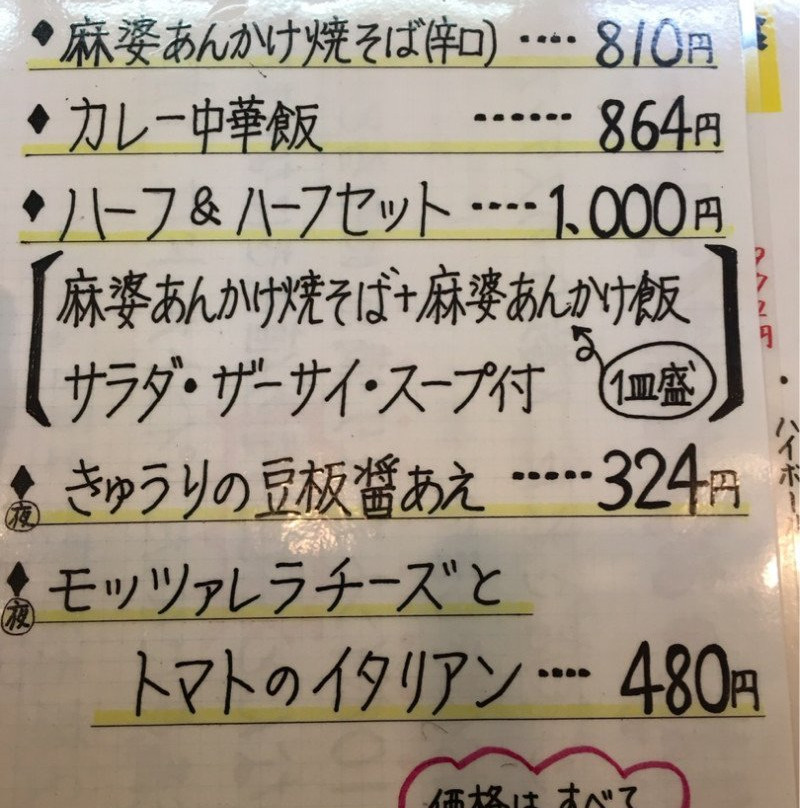 ◆麻婆あんかけ焼そば(辛口) ···· 810円
◆カレー中華飯 ······ 864円
◆ハーフ&ハーフセット ···· 1,000円
麻婆あんかけ焼そば+麻婆あんかけ飯
サラダ・ザーサイ・スープ付 1皿盛
◆夜 きゅうりの豆板醤あえ ····· 324円
◆夜 モッツァレラチーズと
トマトのイタリアン ···· 480円
価格はすべて
・ハイボー